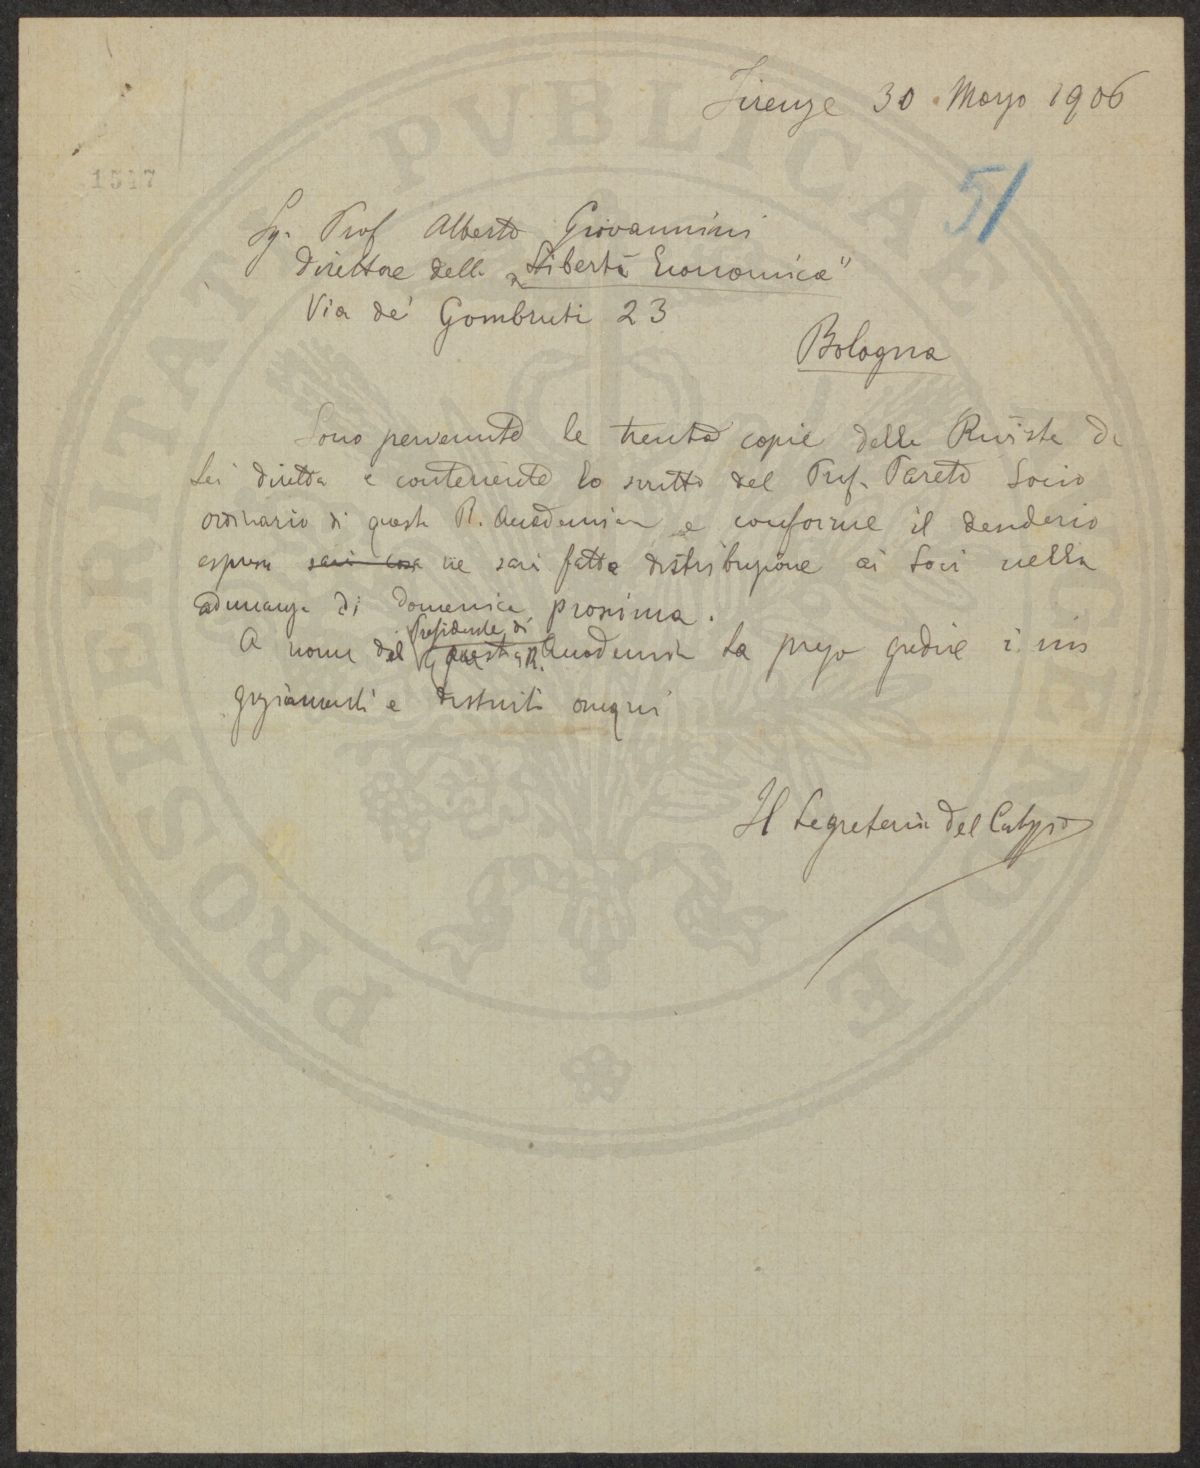 Firenze 30 Marzo 1906
1517
51
Sg. Prof Alberto Giovannini
Direttore della "Libertà Economica"
Via de' Gombruti 23
Bologna
Sono pervenute le trenta copie della Rivista da
Lei diretta e contenente lo scritto del Prof. Pareto Socio
ordinario di questa R. Accademia e conforme il desiderio
espresso ne sarà fatta distribuzione ai Soci nella
adunanza di Domenica prossima.
A nome del Presidente di questa R. Accademia La prego gradire i rin
graziamenti e distinti ossequi
Il Segretario del
PROSPERITATI PVBLICAE AVGENDAE